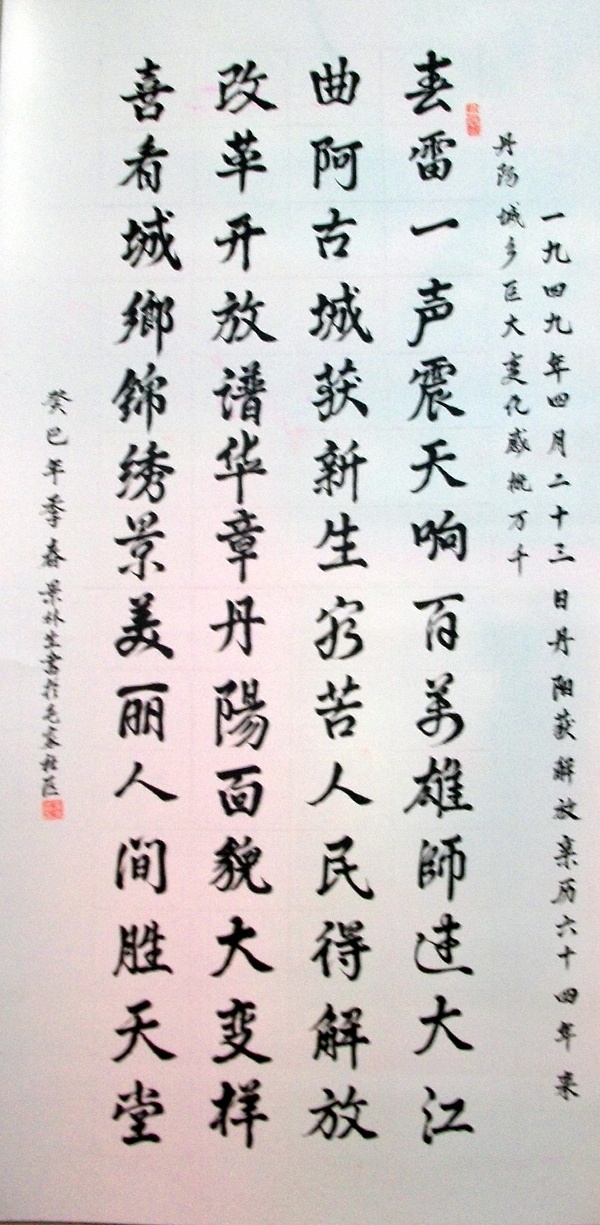 一九四九年四月二十三日丹阳获解放亲历六十四年来
丹阳城乡巨大变化感慨万千
春雷一声震天响百万雄師过大江
曲阿古城获新生穷苦人民得解放
改革开放谱华章丹陽面貌大变样
喜看城鄉錦绣景美丽人间胜天堂
癸巳年季春景林生書于毛家社区